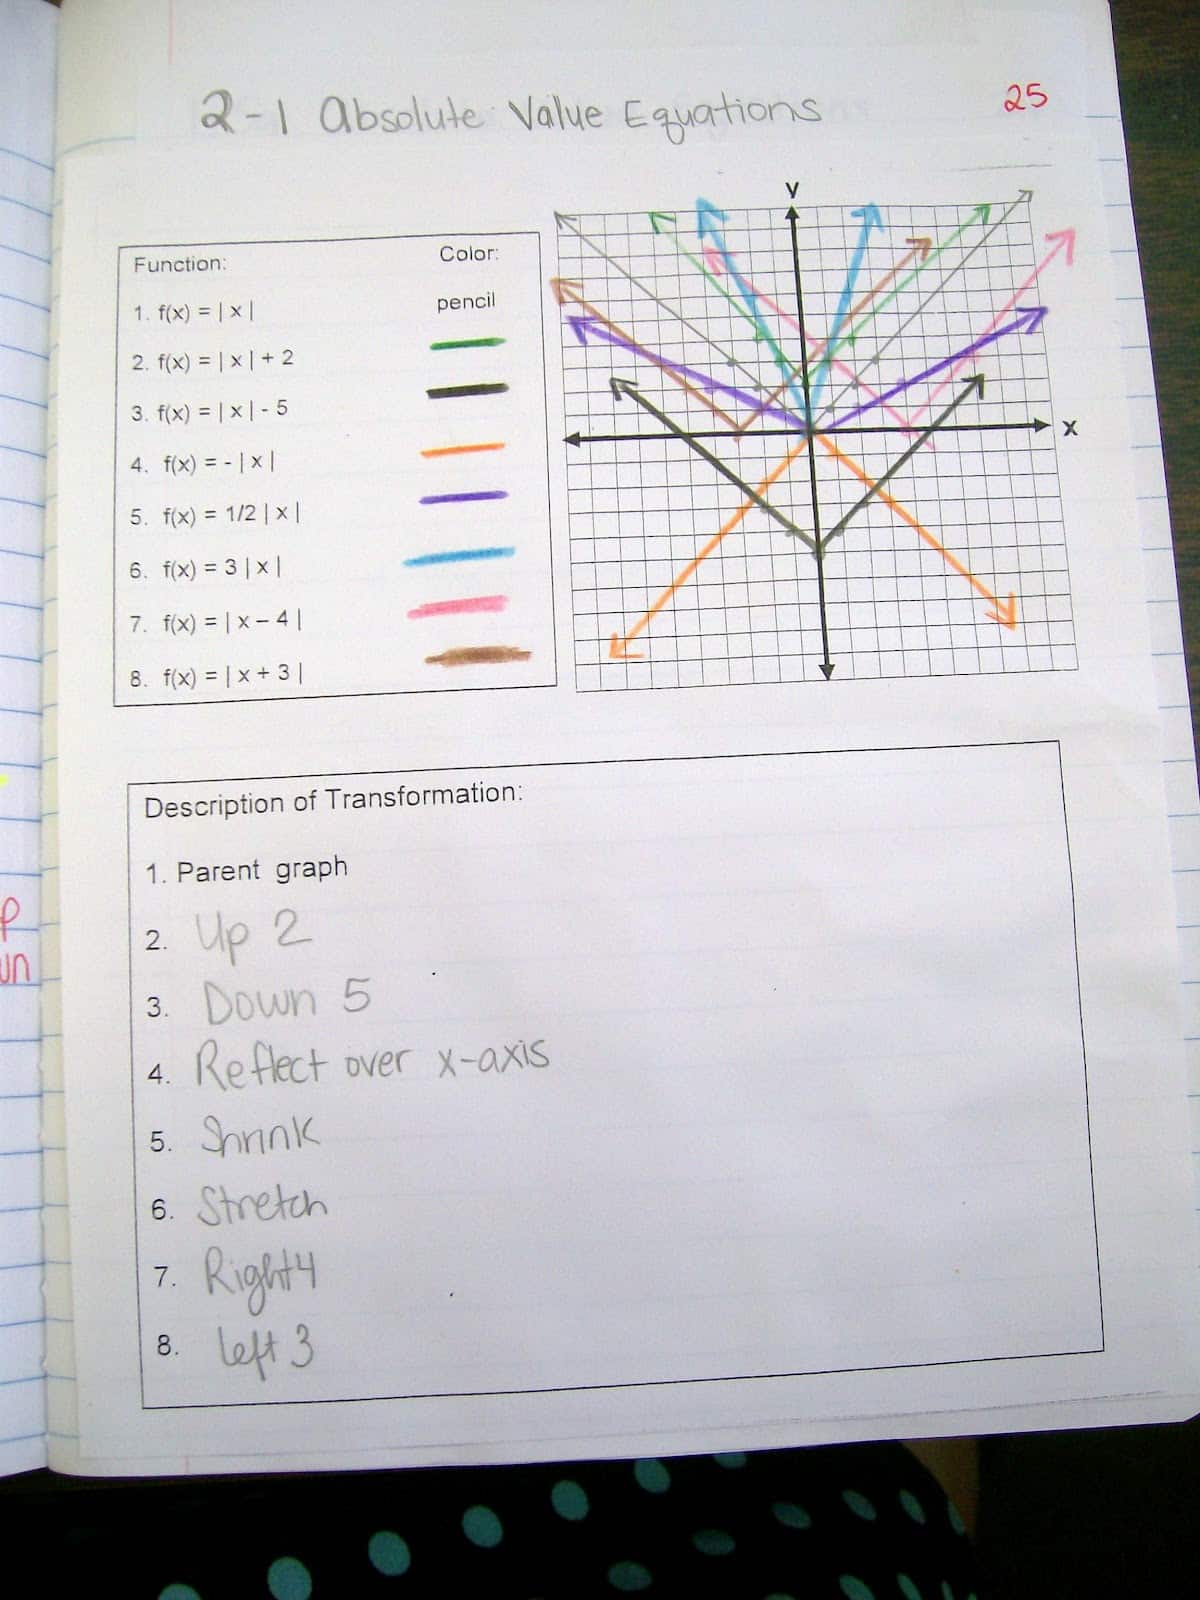 2-1 Absolute Value Equations
25
Function: Color:
1. f(x) = | x | pencil
2. f(x) = | x | + 2
3. f(x) = | x | - 5
4. f(x) = - | x |
5. f(x) = 1/2 | x |
6. f(x) = 3 | x |
7. f(x) = | x – 4 |
8. f(x) = | x + 3 |
y
x
Description of Transformation:
1. Parent graph
2. Up 2
3. Down 5
4. Reflect over x-axis
5. Shrink
6. Stretch
7. Right 4
8. Left 3